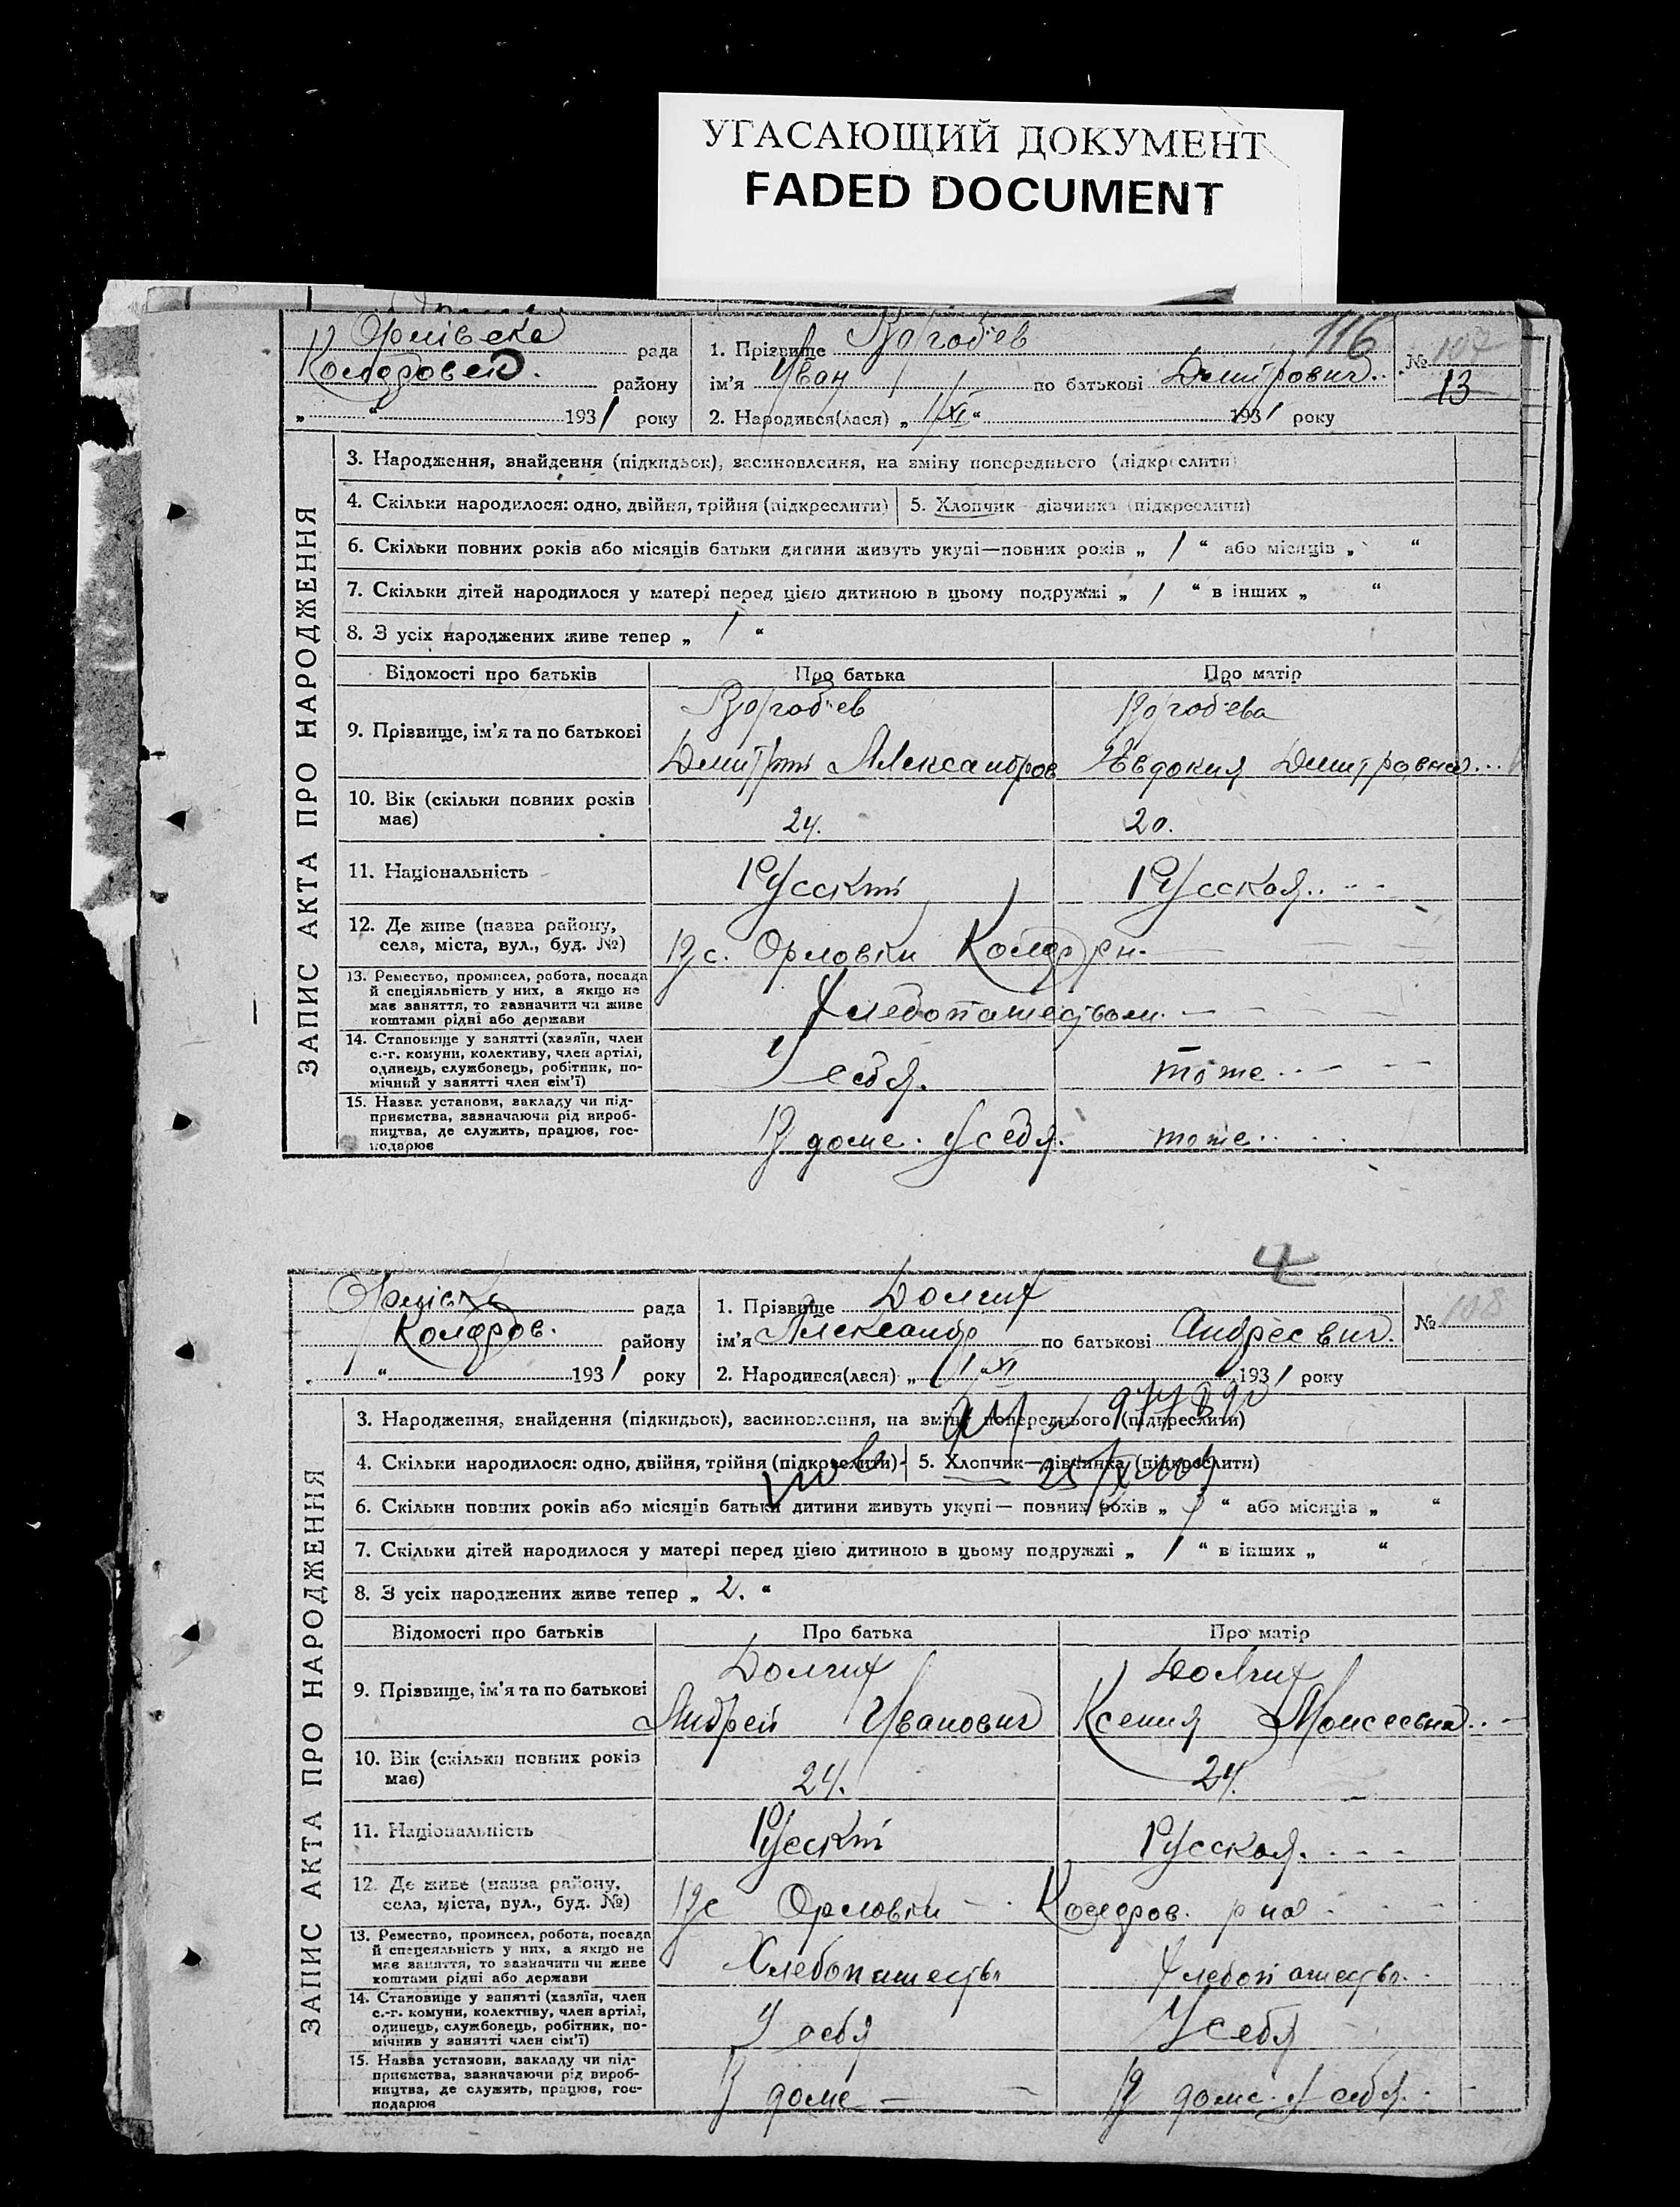 УГАСАЮЩИЙ ДОКУМЕНТ
FADED DOCUMENT
116
Орлівска рада
района району
„ “ 1931 року
1. Прізвище Воробiев
ім'я Иван по батькові Дмитрович.
2. Народився(лася) „ 1/XI “ 1931 року
№ 107
13
ЗАПИС АКТА ПРО НАРОДЖЕННЯ
3. Народження, знайдення (підкидьок), засиновлення, на зміну попереднього (підкреслити)
4. Скільки народилося: одно, двійня, трійня (підкреслити) 5. Хлопчик—дівчинка (підкреслити)
6. Скільки повних років або місяців батьки дитини живуть укупі—повних років „ 1 “ або місяців „ “
7. Скільки дітей народилося у матері перед цією дитиною в цьому подружжі „ 1 “ в інших „ “
8. З усіх народжених живе тепер „ 1 “
Відомості про батьків Про батька Про матір
9. Прізвище, ім'я та по батькові
Воробiев Воробiева
Дмитрий Александров Евдокия Дмитровна
10. Вік (скільки повних років має) 24. 20.
11. Національність Русский Русская
12. Де живе (назва району, села, міста, вул., буд. №)
В с. Орловки
13. Ремество, промисел, робота, посада
й спеціяльність у них, а якщо не
має заняття, то зазначити чи живе
коштами рідні або держави
Хлебопашеством
14. Становище у занятті (хазяїн, член
с.-г. комуни, колективу, член артілі,
одинець, службовець, робітник, по-
мічний у занятті член сім'ї)
У себя. тоже
15. Назва установи, закладу чи під-
приємства, зазначаючи рід вироб-
ництва, де служить, працює, гос-
подарює
В доме. У себя. тоже
4
Орлівск рада
району
„ “ 1931 року
1. Прізвище Долгих
ім'я Александр по батькові Андреевич.
2. Народився(лася) „ 1 “ XI 1931 року
№ 108
ЗАПИС АКТА ПРО НАРОДЖЕННЯ
3. Народження, знайдення (підкидьок), засиновлення, на зміну попереднього (підкреслити)
4. Скільки народилося: одно, двійня, трійня (підкреслити) 5. Хлопчик—дівчинка (підкреслити)
6. Скільки повних років або місяців батьки дитини живуть укупі— повних років „ 3 “ або місяців „ “
7. Скільки дітей народилося у матері перед цією дитиною в цьому подружжі „ 1 “ в інших „ “
8. З усіх народжених живе тепер „ 2. “
Відомості про батьків Про батька Про матір
9. Прізвище, ім'я та по батькові
Долгих Долгих
Андрей Иванович Ксения Моисеевна
10. Вік (скільки повних років має) 24. 24.
11. Національність Русский Русская.
12. Де живе (назва району, села, міста, вул., буд. №)
В с Орловки
13. Ремество, промисел, робота, посада
й спецеяльність у них, а якщо не
має заняття, то зазначити чи живе
коштами рідні або держави
Хлебопашеств Хлебопашеств.
14. Становище у занятті (хазяїн, член
с.-г. комуни, колективу, член артілі,
одинець, службовець, робітник, по-
мічнив у занятті член сім'ї)
У себя У себя
15. Назва установи, закладу чи під-
приємства, зазначаючи рід вироб-
ництва, де служить, працює, гос-
подарює
В доме В доме У себя.